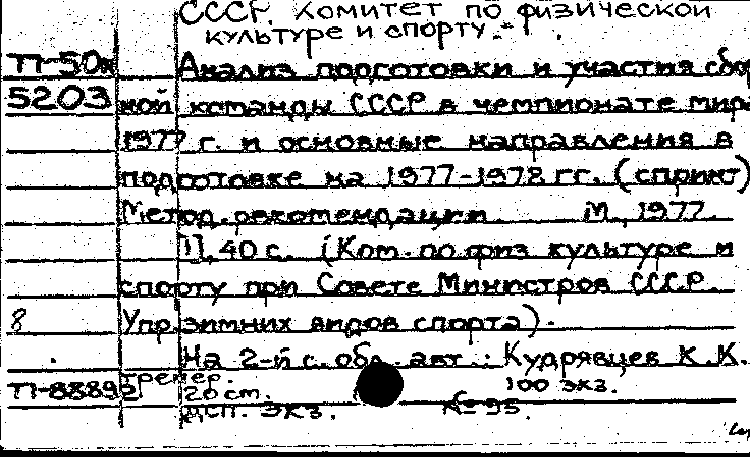 СССР. Комитет по физической
культуре и спорту.
П-50ж Анализ подготовки и участия сбор
5203 ной команды СССР в чемпионате мира
1977 г. и основные направления в
подготовке на 1977-1978 гг. (спринт)
Метод. рекомендации М., 1977.
II, 40 с. (Ком. по физ культуре и
спорту при Совете Министров СССР.
8 Упр. зимних видов спорта).
На 2-й с. обл. авт.: Кудрявцев К.К.
тренер. 100 экз.
П-88892 20 см.
ДСП. Экз. № 95.